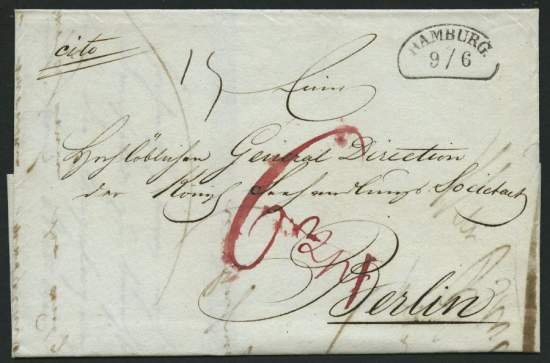 HAMBURG.
9/6
cito
15
Einer
Hochlöblichen General Direction
der Königl Seehandlungs Societaet
6
Berlin